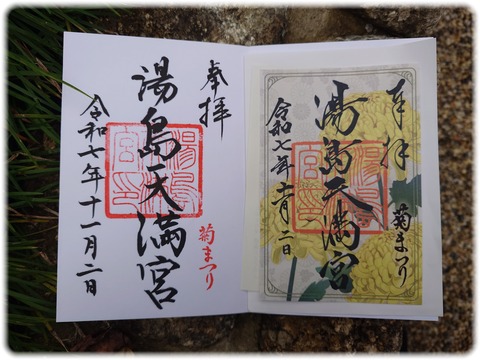 奉拝
湯島天満宮
菊まつり
令和七年十一月二日
奉拝
菊まつり
湯島天満宮
令和七年十一月二日